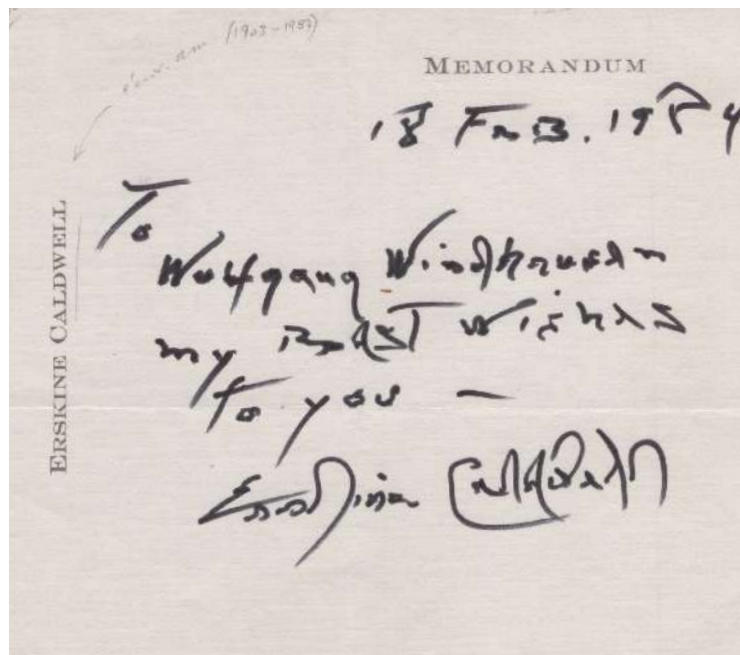 (1903-1987)
MEMORANDUM
18 FEB. 1984
ERSKINE CALDWELL
To
Wolfgang Windhausen
my BEST WisHES
To you —
Erskine Caldwell